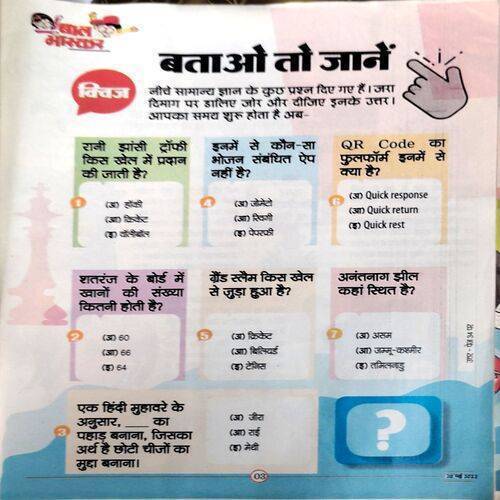 बाल
भास्कर
बताओ तो जानें
क्विज
नीचे सामान्य ज्ञान के कुछ प्रश्न दिए गए हैं। जरा
दिमाग पर डालिए जोर और दीजिए इनके उत्तर।
आपका समय शुरू होता है अब-
रानी झांसी ट्रॉफी
किस खेल में प्रदान
की जाती है?
1
(अ) हॉकी
(आ) क्रिकेट
(इ) वॉलीबॉल
इनमें से कौन-सा
भोजन संबंधित ऐप
नहीं है?
4
(अ) जोमेटो
(आ) स्विगी
(इ) पेपरफ्री
QR Code का
फुलफॉर्म इनमें से
क्या है?
6
(अ) Quick response
(आ) Quick return
(इ) Quick rest
शतरंज के बोर्ड में
खानों की संख्या
कितनी होती है?
2
(अ) 60
(आ) 66
(इ) 64
ग्रैंड स्लैम किस खेल
से जुड़ा हुआ है?
5
(अ) क्रिकेट
(आ) बिलियर्ड
(इ) टेनिस
अनंतनाग झील
कहां स्थित है?
7
(अ) असम
(आ) जम्मू-कश्मीर
(इ) तमिलनाडु
3
एक हिंदी मुहावरे के
अनुसार, ___ का
पहाड़ बनाना, जिसका
अर्थ है छोटी चीजों का
मुद्दा बनाना।
(अ) जीरा
(आ) राई
(इ) मेथी
?
03